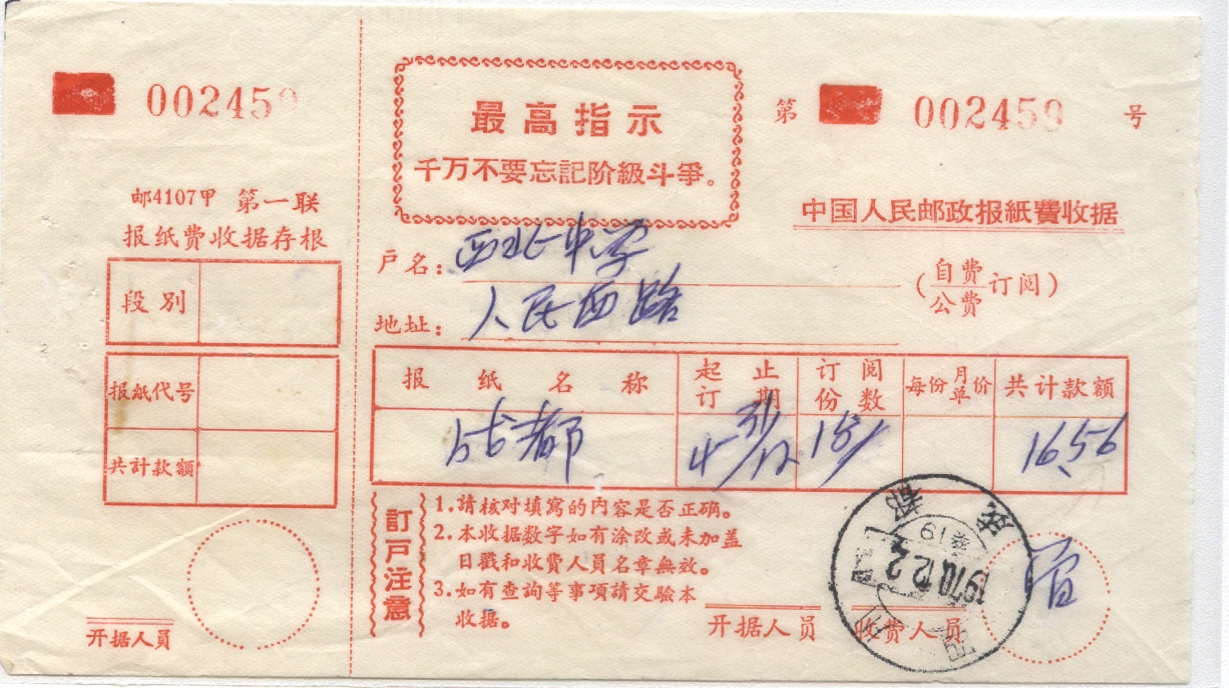 002459
邮4107甲 第一联
报纸费收据存根
段别
报紙代号
共计款额
开据人员
最高指示
千万不要忘記阶級斗爭。
第 002459 号
中国人民邮政报紙費收据
(自费公费订阅)
户名：西北中学
地址：人民西路
报纸名称 起止订期 订阅份数 每份月单价 共计款额
成都 16.56
訂戸注意
1.請核对填寫的内容是否正确。
2.本收据数字如有涂改或未加盖
日戳和收费人员名章無效。
3.如有查詢等事項請交驗本
收据。
开据人员 收费人员
成都
1970.12.2